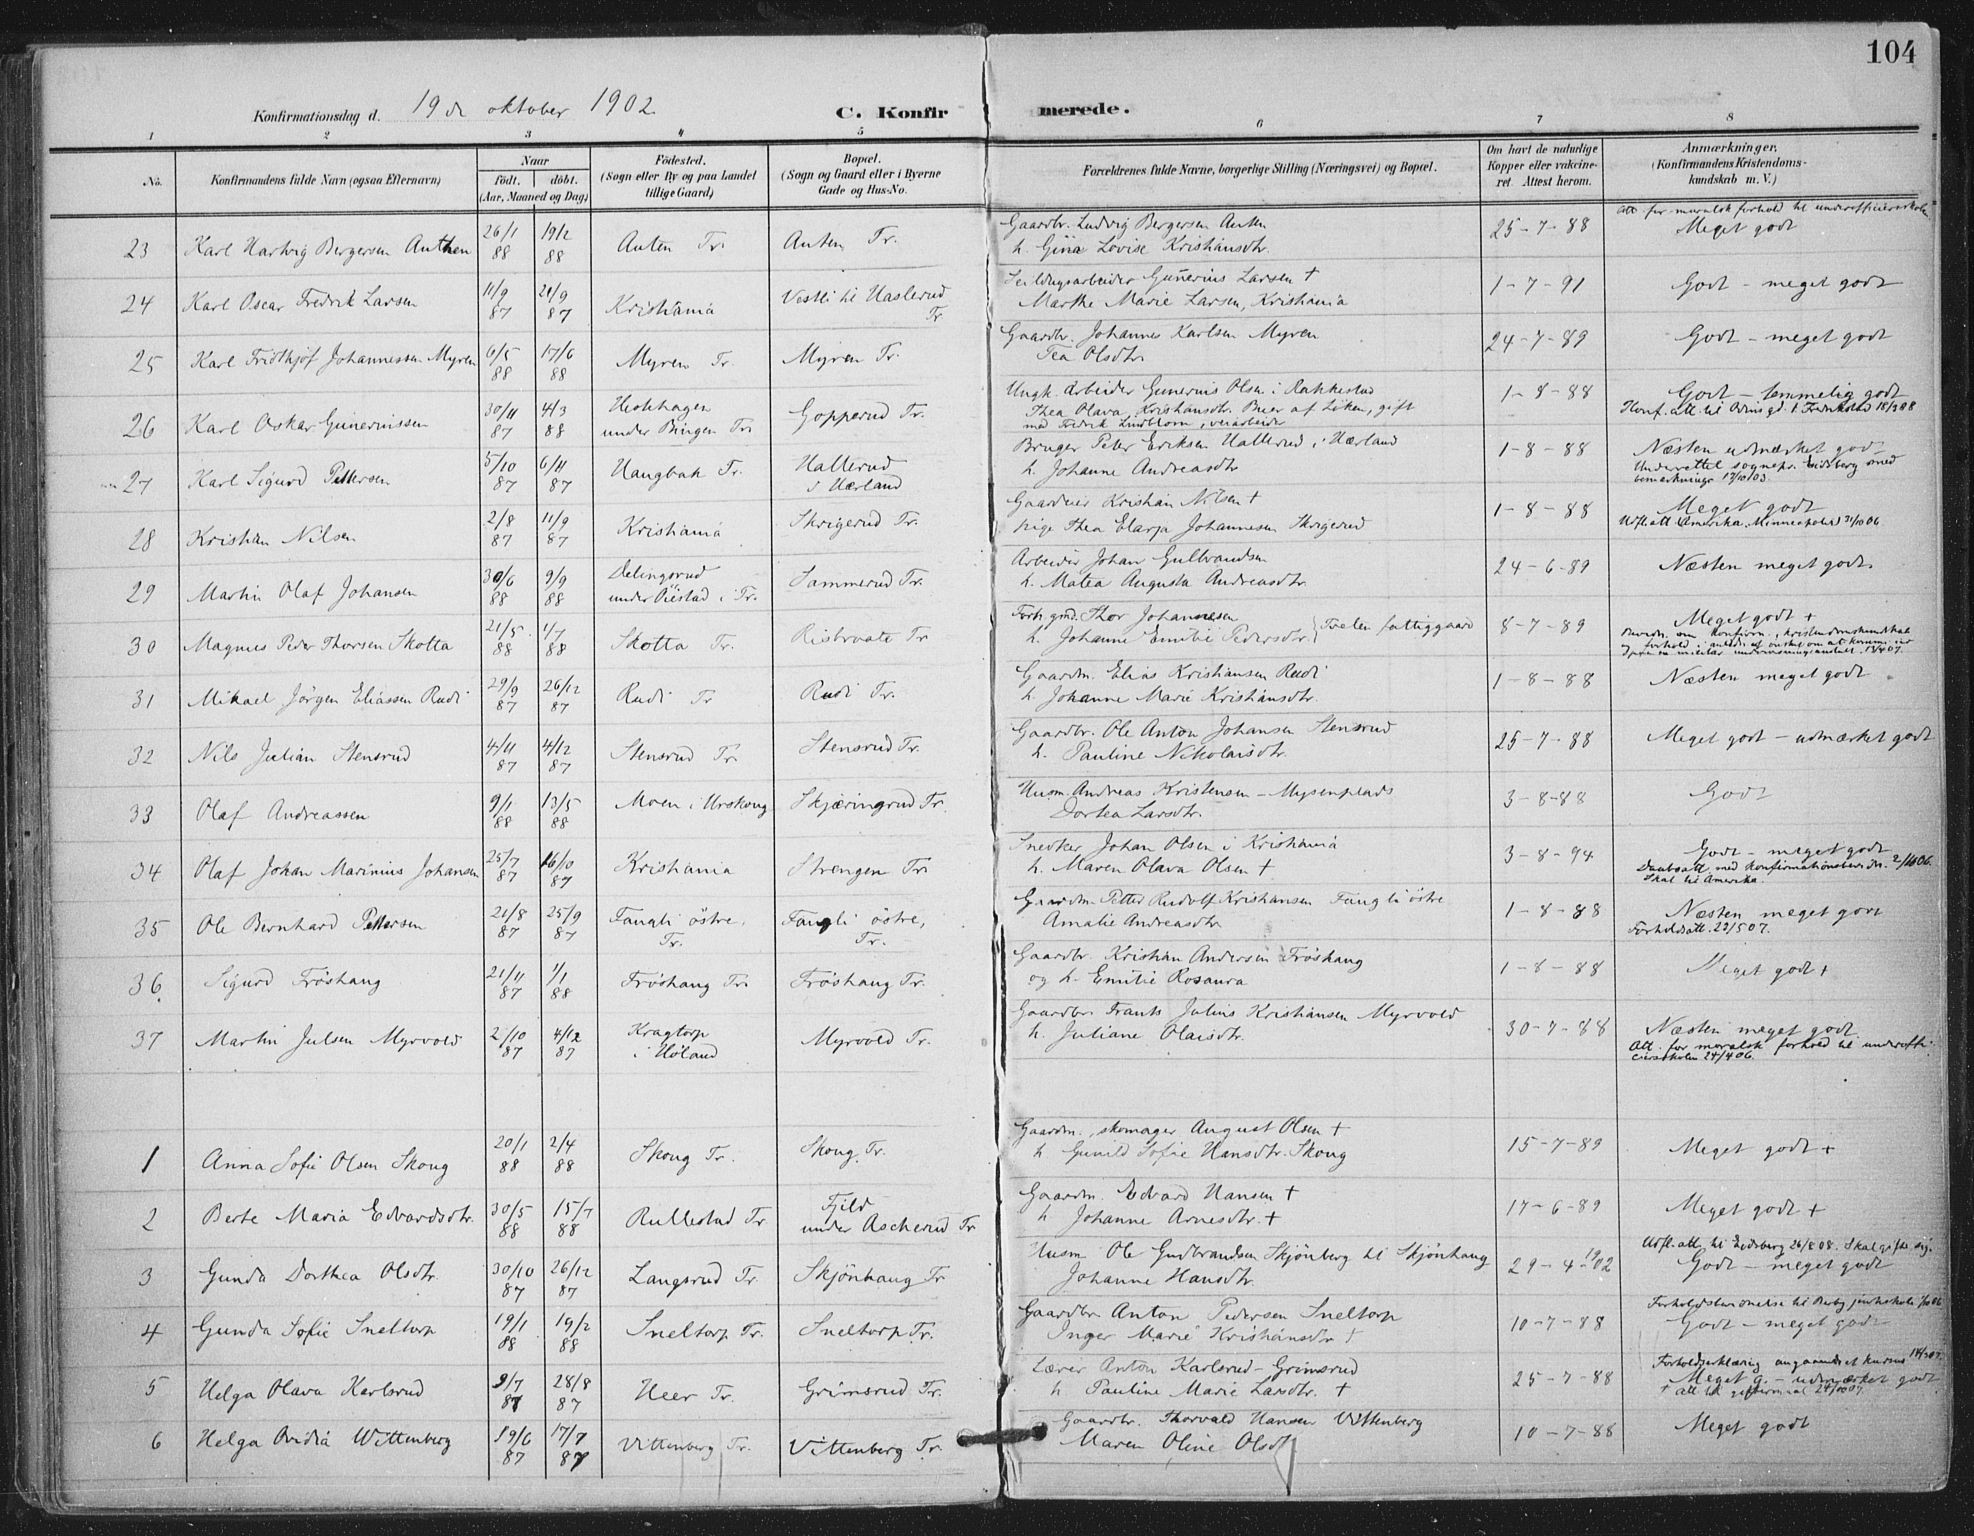 104
Konfirmationsdag d. 19de oktober 1902. C. Konfirmerede.
1 2 3 4 5 6 7 8
No. Konfirmandens fulde Navn (ogsaa Efternavn) Naar født. døbt. (Aar, Maaned og Dag) Fødested. (Sogn eller By og paa Landet tillige Gaard) Bopæl. (Sogn og Gaard eller i Byerne Gade og Hus-No. Forældrenes fulde Navne, borgerlige Stilling (Næringsvei) og Bopæl. Om havt de naturlige Kopper eller vakcineret. Attest herom. Anmærkninger. (Konfirmandens Kristendomskundskab m. V.)
Att. for moralsk forhold til underofficersskolen
23 Karl Hartvig Bergersen Authen 26/1 88 19/2 88 Auten Tr. Auten Tr. Gaardbr. Ludvig Bergersen Auten 25-7-88 Meget godt
h. Gina Lovise Kristiansdtr.
24 Karl Oscar Fredrik Larsen 11/9 87 21/9 87 Kristiania Vestli til Haslerud Tr Seildugsarbeider Gunerius Larsen + 1-7-91 Godt - meget godt
Marthe Marie Larsen, Kristiania
25 Karl Fridthjof Johannessen Myren 6/5 88 17/6 88 Myren Tr. Myren Tr. Gaardbr. Johannes Karlsen Myren 24-7-89 Godt - meget godt
Tea Olsdtr.
26 Karl Oskar Gunerinssen 30/11 87 4/3 88 under Bingen Tr. Gopperud Tr. Ungk. arbeider Gunerius Olsen i Rakkestad 1-8-88 Godt - temmelig godt
Thea Olava Kristiansdtr. Buer af Löken, gift
med Fredrik Lindblom, verarbeider
27 Karl Sigurd Pettersen 5/10 87 6/11 87 Haugbak Tr. Hallerud i Hærland Bruger Peter Eriksen Hallerud i Hærland 1-8-88 Næsten udmærket godt
h. Johanne Andreasdtr Underrettet sognepr. Eidsberg med
bemærkninge 17/10 03.
28 Kristian Nilsen 2/8 87 11/9 87 Kristiania Skrigerud Tr. Gaardeier Kristian Nilsen + 1-8-88 Meget godt
pige Thea Elarja Johannesen Skrigerud Utfl. att. Amerika, Minneapolis 31/10 06
29 Martin Olaf Johansen 30/6 88 9/9 88 Delingsrud under Öiestad i Tr. Sammerud Tr. Arbeider Johan Gulbrandsen 24-6-89 Næsten meget godt.
h. Matea Augusta Andreasdtr.
30 Magnus Peder Thorsen Skotta 21/5 88 1/7 88 Skotta Tr. Risbrvate Tr Thor Johannesen 8-7-89 Meget godt +
h. Johanne Emilie Pedersdtr. } Tvelen fattiggaard
31 Mikael Jörgen Eliassen Rudi 29/9 87 26/12 87 Rudi Tr Rudi Tr. Gaardm. Elias Kristiansen Rudi 1-8-88 Næsten meget godt
h. Johanne Marie Kristiansdtr.
32 Nils Julian Stensrud 4/11 87 4/12 87 Stensrud Tr. Stensrud Tr. Gaardbr. Ole Anton Johansen Stensrud 25-7-88 Meget godt - udmærket godt
h. Pauline Nikolaisdtr.
33 Olaf Andreassen 9/1 88 13/5 88 Moen i Urskoug Skjæringrud Tr. Husm. Andreas Kristensen - Mysenplads 3-8-88 Godt
Dortea Larsdtr.
34 Olaf Johan Marinius Johansen 25/7 87 16/10 87 Kristiania Strengen Tr. Snedker Johan Olsen i Kristiania 3-8-94 Godt - meget godt
h. Maren Olava Olsen + Daabsatt. med konfirmationsbevidn. 2/10 06.
Skal til Amerika.
35 Ole Bernhard Pettersen 21/8 87 25/9 87 Fangli östre, Tr. Fangli östre, Tr. Gaardm. Petter Rudolf Kristiansen Fangli östre 1-8-88 Næsten meget godt
Amalie Andreasdtr. Forholdsatt. 29/5 07.
36 Sigurd Fröshaug 21/11 87 1/1 88 Fröshaug Tr. Fröshaug Tr. Gaardbr. Kristian Andersen Fröshaug 1-8-88 Meget godt +
og h. Emilie Rosaura
37 Martin Julsen Myrvold 2/10 87 4/12 87 Kragtorp i Höland Myrvold Tr. Gaardbr. Frants Julius Kristiansen Myrvold 30-7-88 Næsten meget godt
h. Juliane Olaisdtr. Att. for moralsk forhold til underoffi-
cersskolen 24/4 06.
1 Anna Sofie Olsen Skoug 20/1 88 2/4 88 Skoug Tr. Skoug Tr. Gaardm., skomager August Olsen + 15-7-89 Meget godt +
h Gunild Sofie Hansdtr. Skoug
2 Berte Maria Edvardsdtr. 30/5 88 15/7 88 Rullestad Tr Fjeld under Ascherud Tr Gaardm. Edvard Hansen + 17-6-89 Meget godt +
h Johanne Arnesdtr. +
Udfl. att. til Eidsberg 26/8 08. Skal gifte sig.
3 Gunda Dorthea Olsdtr. 30/10 87 26/12 87 Langsrud Tr. Skjönhaug Tr Husm Ole Gudbrandsen Skjönberg til Skjönhaug 29-4-1902 Godt - meget godt
Johanne Hansdtr.
4 Gunda Sofie Sneltorp 19/1 88 19/2 88 Sneltorp Tr. Sneltorp Tr. Gaardbr. Anton Pedersen Sneltorp 10-7-88 Godt - meget godt
Inger Marie Kristiansdtr +
5 Helga Olava Karlsrud 9/7 87 28/8 87 Heer Tr. Grimsrud Tr. Lærer Anton Karlsrud - Grimsrud 25-7-88 Meget g. - udmærket godt
h Pauline Marie Larsdtr. + + att. til giftermaal 24/10 07.
6 Helga Ovidia Wittenberg 19/6 87 17/7 87 Vittenberg Tr. Vittenberg Tr. Gaardbr. Thorvald Hansen Vittenberg 10-7-88 Meget godt
Maren Oline Olsdt